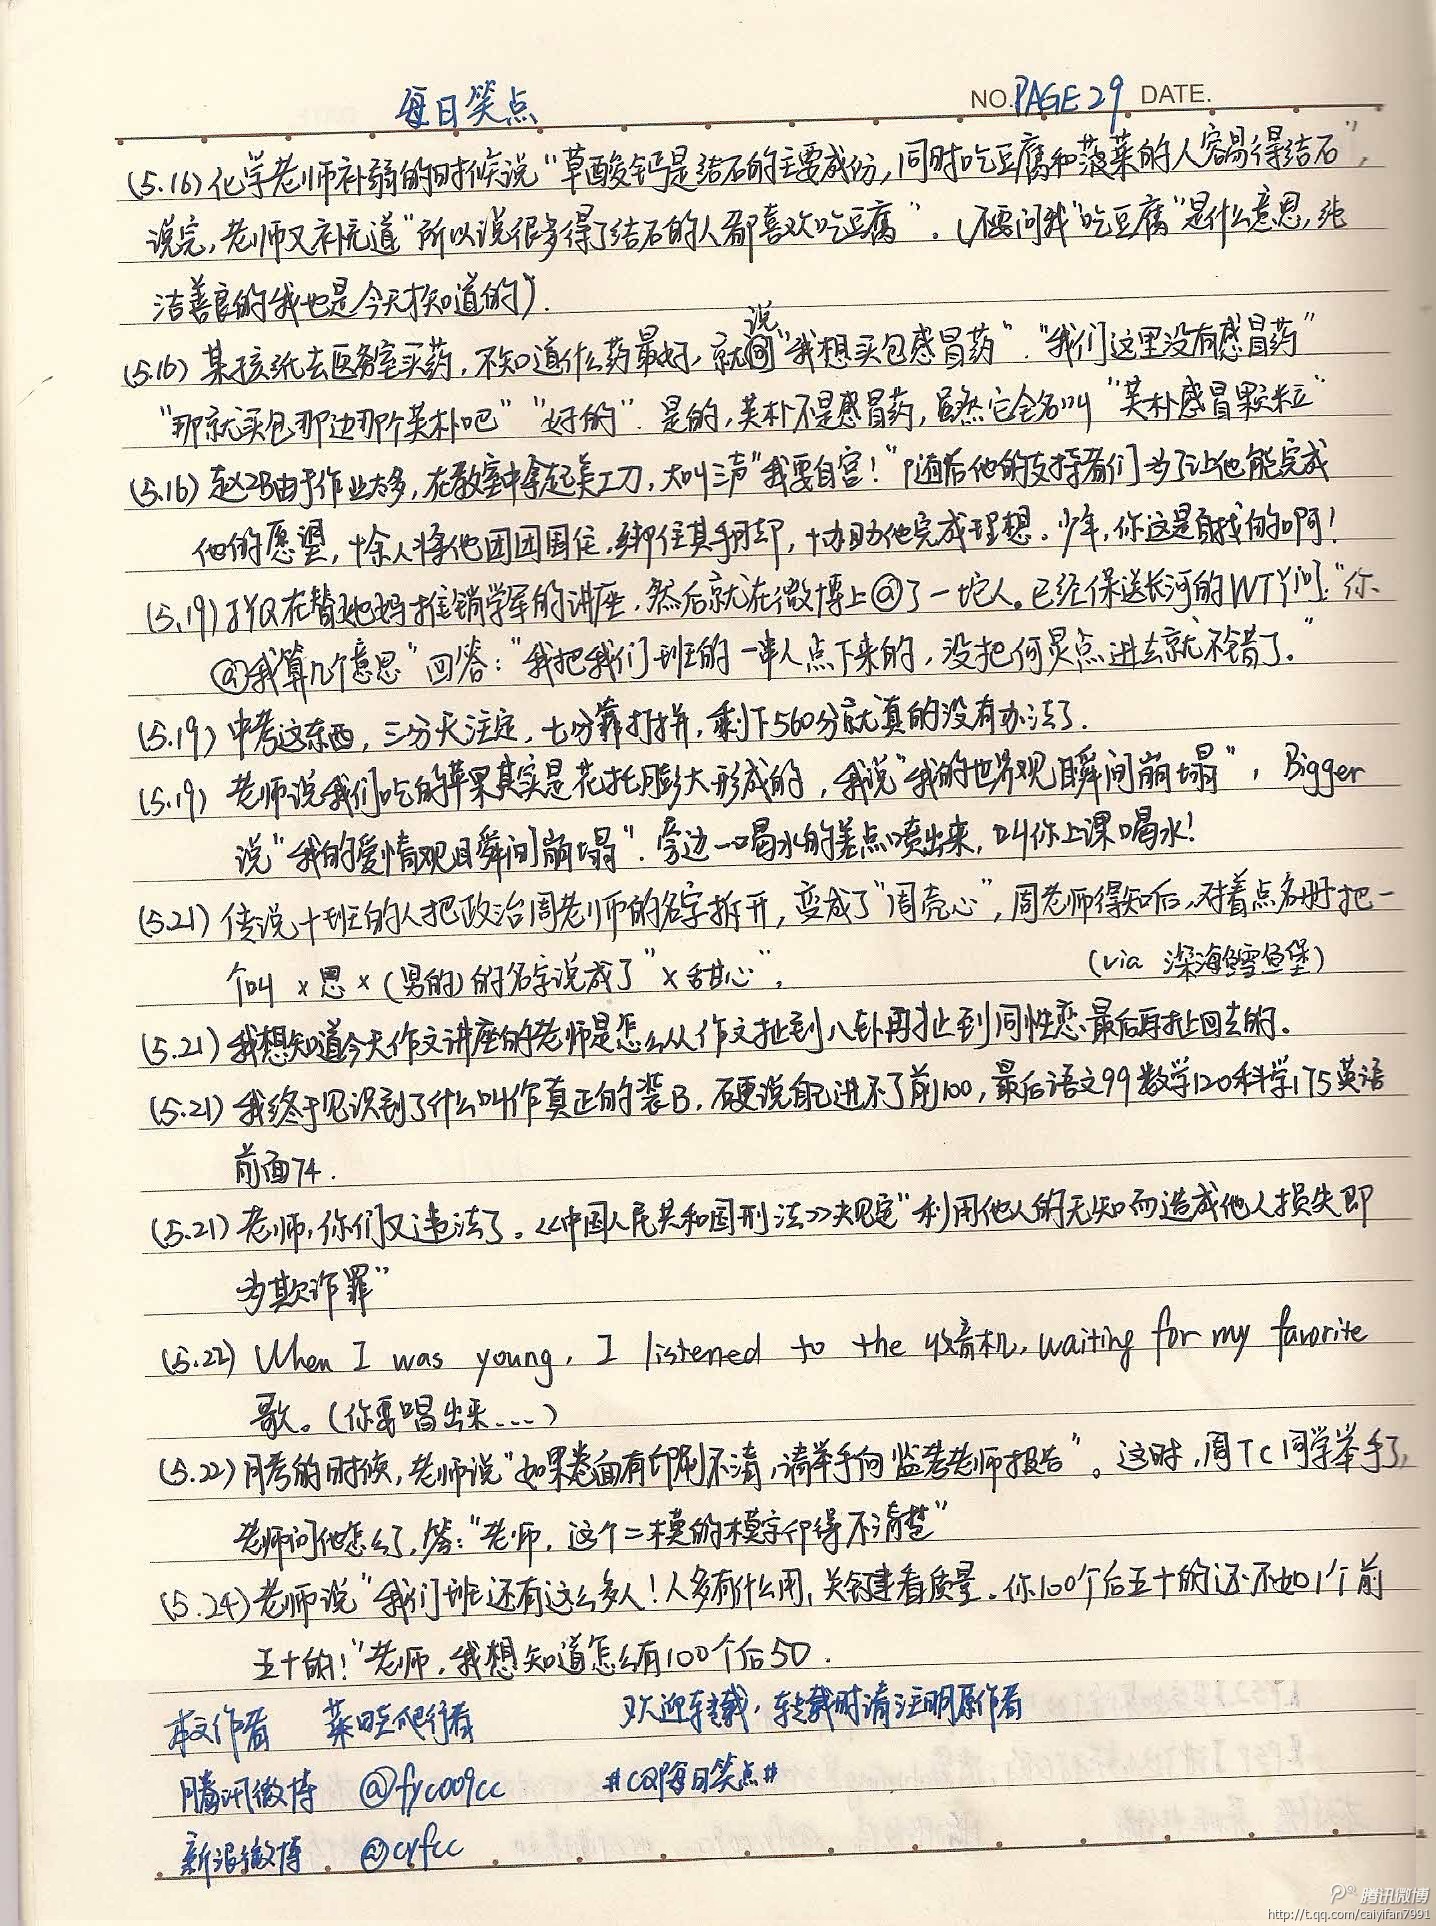 每日笑点 NO.PAGE 29 DATE.
(5.16) 化学老师补弱的时候说“草酸钙是结石的主要成份,同时吃豆腐和菠菜的人容易得结石”,
说完,老师又补充道“所以说很多得了结石的人都喜欢吃豆腐”.(不要问我“吃豆腐”是什么意思,纯
洁善良的我也是今天才知道的).
(5.16) 某孩纸去医务室买药,不知道什么药最好,就说“我想买包感冒药”.“我们这里没有感冒药”
“那就买包那边那个英朴吧”“好的”.是的,英朴不是感冒药,虽然它全名叫“英朴感冒颗粒”
(5.16) 赵2B由于作业太多,在教室中拿起美工刀,大叫三声“我要自宫!”随后他的支持者们为了让他能完成
他的愿望,十余人将他团团围住,绑住其手脚,协助他完成理想。少年,你这是自找的啊!
(5.19) JYQ在替她妈推销学军的讲座,然后就在微博上@了一坨人。已经保送长河的WTY问:“你
@我算几个意思”回答:“我把我们班的一串人点下来的,没把何灵点进去就不错了。”
(5.19) 中考这东西,三分天注定,七分靠打拼,剩下560分就真的没有办法了.
(5.19) 老师说我们吃的苹果其实是花托膨大形成的,我说“我的世界观瞬间崩塌”,Bigger
说“我的爱情观瞬间崩塌”.旁边一喝水的差点喷出来,叫你上课喝水!
(5.21) 传说十班的人把政治周老师的名字拆开,变成了“周壳心”,周老师得知后,对着点名册把一
个叫×思×(男的)的名字说成了“×甜心”. (via 深海鳕鱼堡)
(5.21) 我想知道今天作文讲座的老师是怎么从作文扯到八卦再扯到同性恋最后再扯回去的。
(5.21) 我终于见识到了什么叫作真正的装B,硬说自己进不了前100,最后语文99数学120科学175英语
前面74.
(5.21) 老师,你们又违法了。《中国人民共和国刑法》规定“利用他人的无知而造成他人损失即
为欺诈罪”
(5.22) When I was young, I listened to the 收音机, waiting for my favorite
歌。(你要唱出来...)
(5.22) 月考的时候,老师说“如果卷面有印刷不清,请举手向监考老师报告”。这时,周TC同学举手了,
老师问他怎么了,答:“老师,这个二模的模字印得不清楚”
(5.24) 老师说“我们班还有这么多人!人多有什么用,关键看质量。你100个后五十的还不如1个前
五十的!”老师,我想知道怎么有100个后50.
本文作者 菜田爬行者 欢迎转载,转载时请注明原作者
腾讯微博 @fyc009cc #CQ每日笑点#
新浪微博 @cyfcc
腾讯微博
http://t.qq.com/caiyifan7991